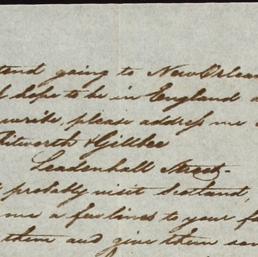 tend going to New Orlean
hope to be in England a
write, please address me
itworth & Gillbee
Leadenhall Street-
probably visit Scotland,
me a few lines to your f
them and give them som